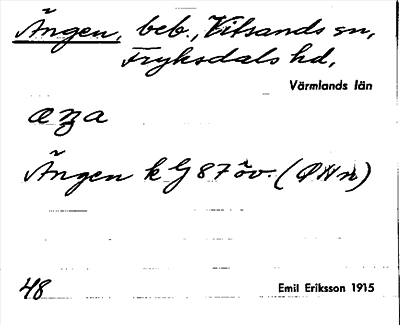 Ängen, beb., Vitsands sn,
Fryksdals hd,
Värmlands län
æŋa
Ängen k G 87 öv. (ÖHn)
48
Emil Eriksson 1915